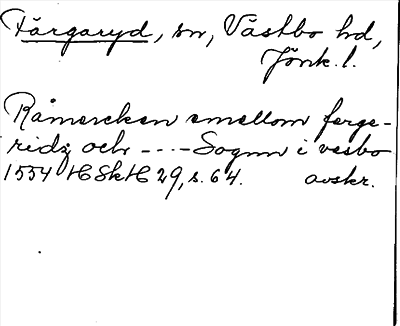 Färgaryd, sn, Västbo hd,
Jönk. l.
Råmercken emellom ferge-
ridz och ---- Sognn i vesbo
1554 HSkH 29, s. 64. avskr.